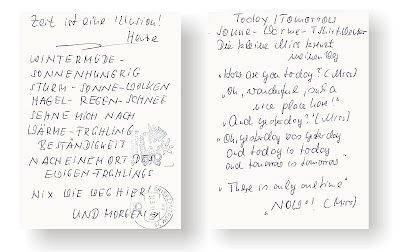 Zeit ist eine Illusion!
Heute
WINTERMÜDE -
SONNENHUNGRIG
STURM - SONNE - WOLKEN
HAGEL - REGEN - SCHNEE
SEHNE MICH NACH
WÄRME - FRÜHLING -
BESTÄNDIGKEIT
NACH EINEM ORT DES
EWIGEN - FRÜHLINGS
NIX WIE WEG HIER!
UND MORGEN →
Today / Tomorrow
Sonne - Wärme - T-Shirt-Wetter
Die kleine Miss kreuzt
meinen Weg
"How are you today?" (Miss)
"Oh, wonderful, such a
nice place here!"
"And yesterday?" (Miss)
"Oh, yesterday was yesterday
and today is today
and tomorrow is tomorrow"
"There is only one time"
"NOW!" (Miss)